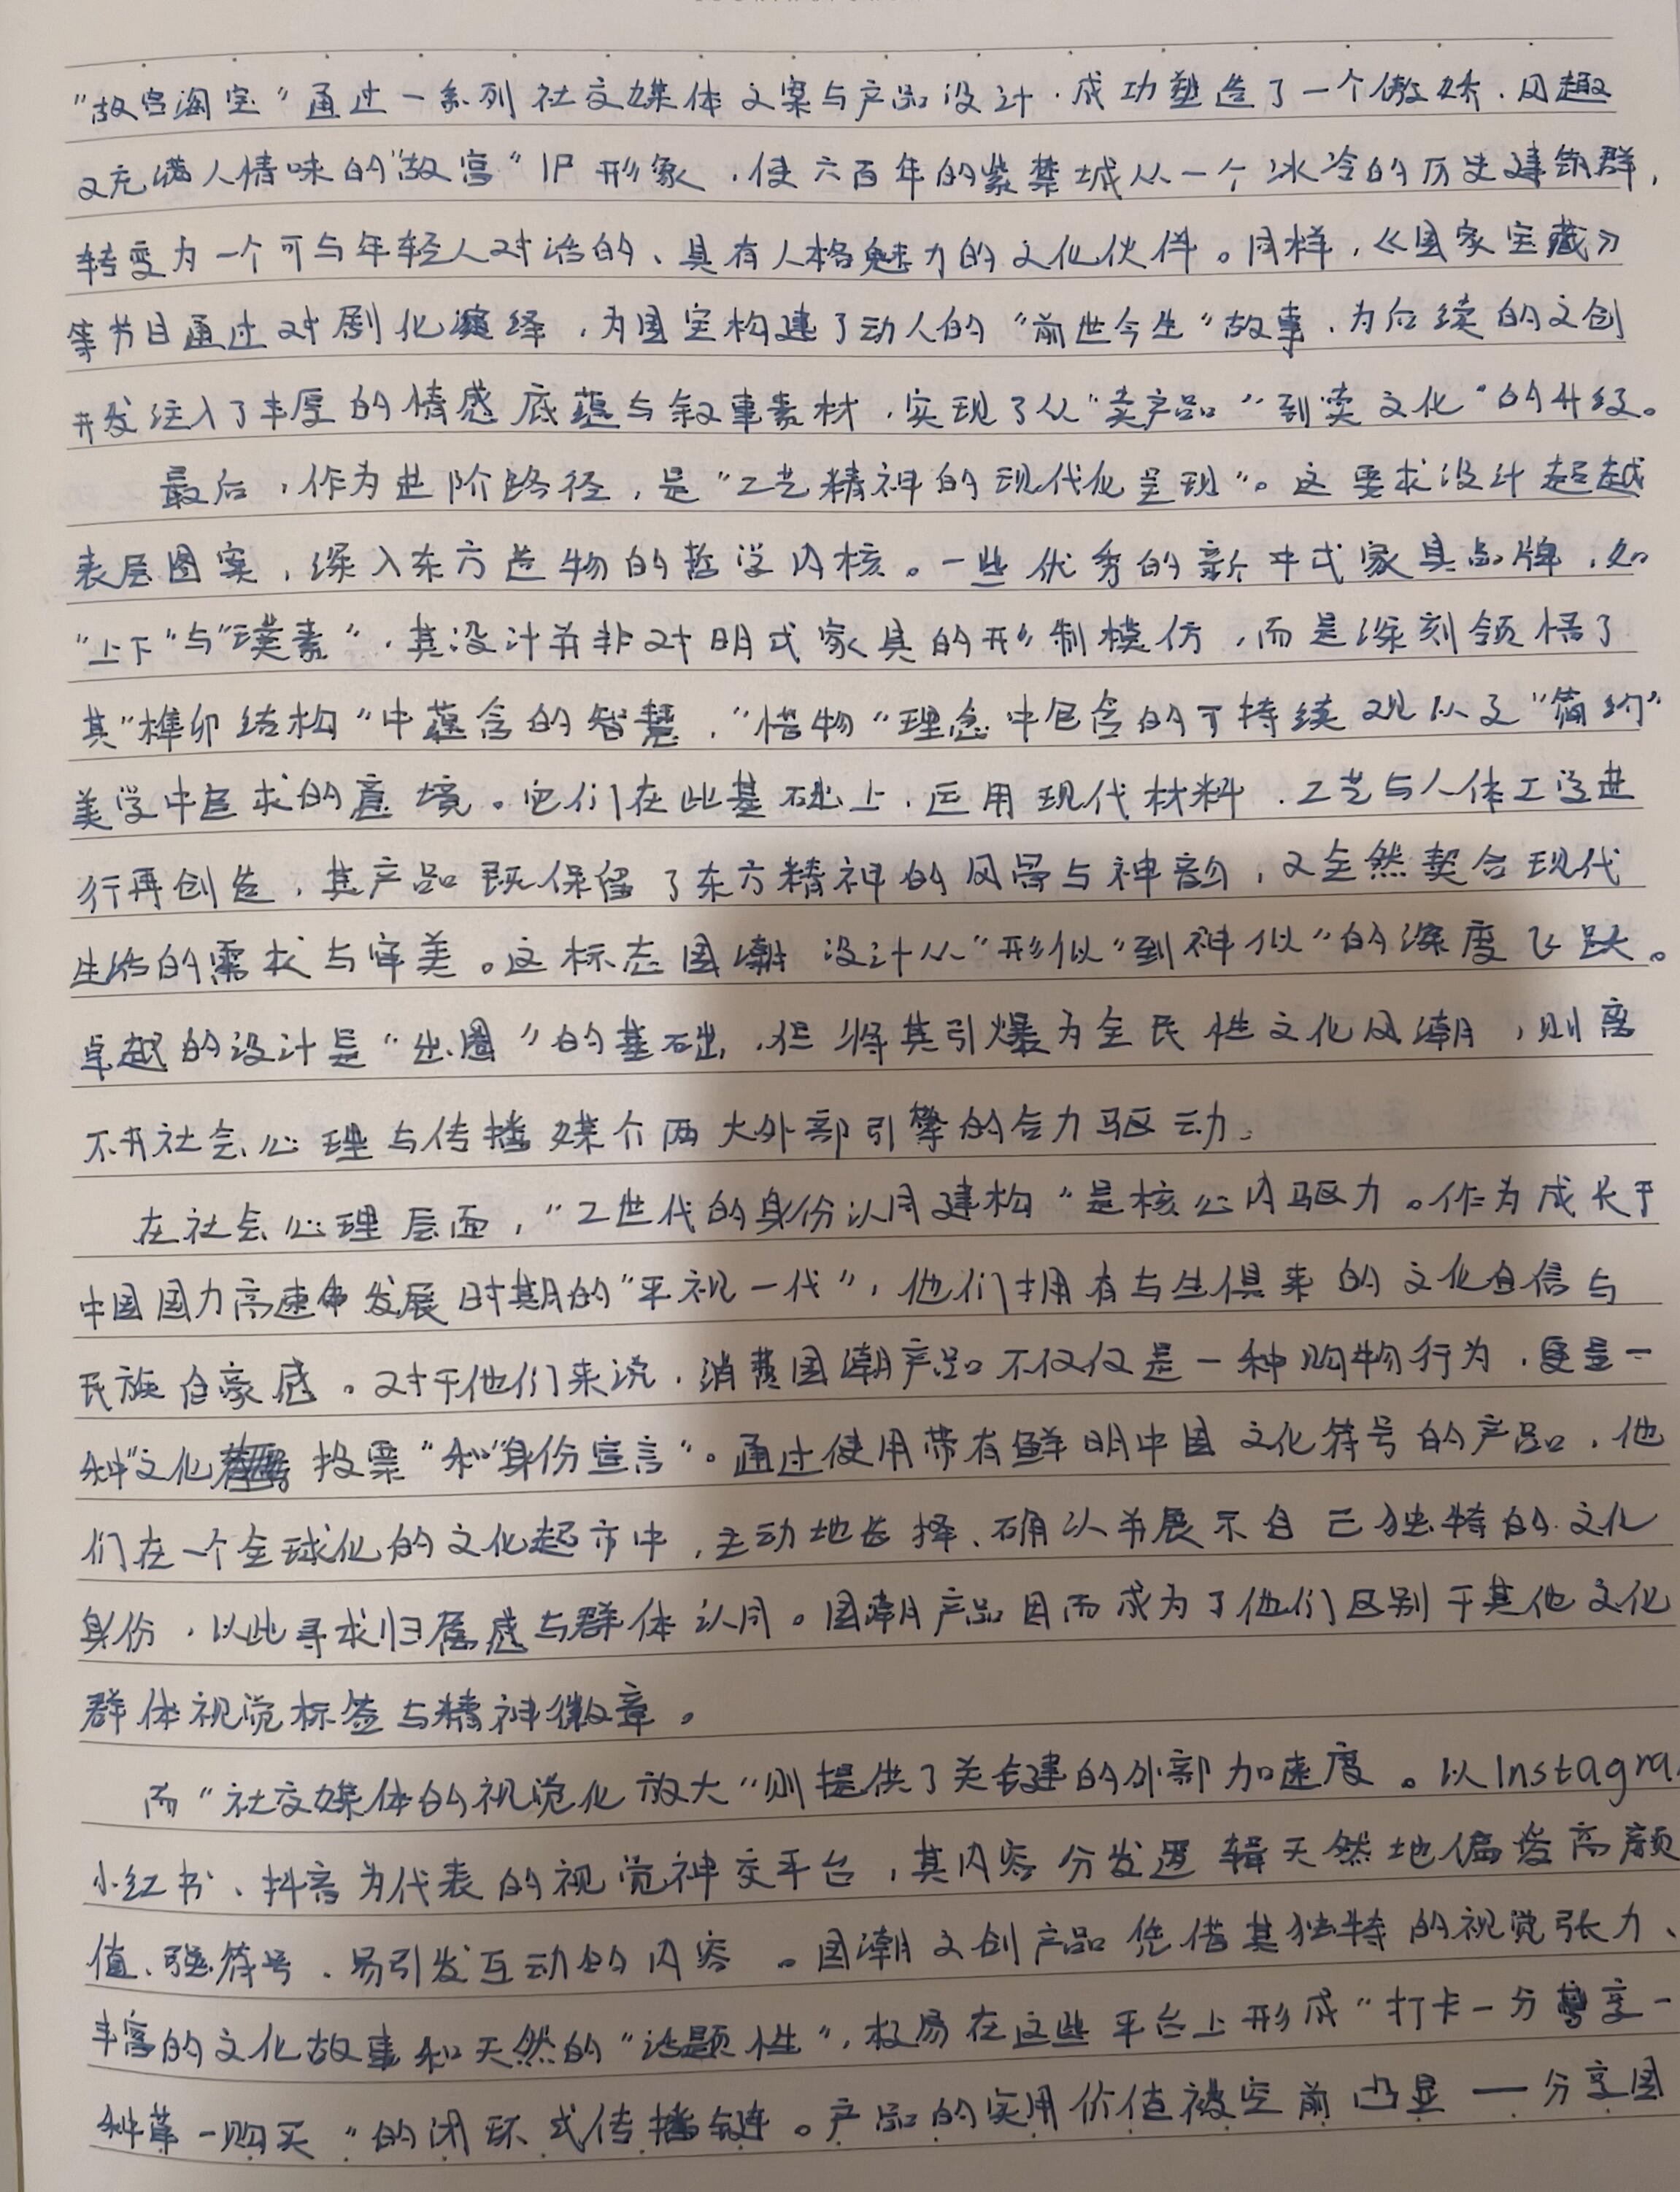 "故宫淘宝"通过一系列社交媒体文案与产品设计，成功塑造了一个傲娇、风趣
又充满人情味的"故宫"IP形象，使六百年的紫禁城从一个冰冷的历史建筑群，
转变为一个可与年轻人对话的、具有人格魅力的文化伙伴。同样，《国家宝藏》
等节目通过对剧化演绎，为国宝构建了动人的"前世今生"故事，为后续的文创
开发注入了丰厚的情感底蕴与叙事素材，实现了从"卖产品"到卖文化"的升级。
最后，作为进阶路径，是"工艺精神的现代化呈现"。这要求设计超越
表层图案，深入东方造物的哲学内核。一些优秀的新中式家具品牌，如
"上下"与"璞素"，其设计并非对明式家具的形制模仿，而是深刻领悟了
其"榫卯结构"中蕴含的智慧，"惜物"理念中包含的可持续观以及"简约"
美学中追求的意境。它们在此基础上，运用现代材料、工艺与人体工学进
行再创造，其产品既保留了东方精神的风骨与神韵，又全然契合现代
生活的需求与审美。这标志国潮设计从"形似"到神似"的深度飞跃。
卓越的设计是"出圈"的基础，但将其引爆为全民性文化风潮，则离
不开社会心理与传播媒介两大外部引擎的合力驱动。
在社会心理层面，"Z世代的身份认同建构"是核心内驱力。作为成长于
中国国力高速发展时期的"平视一代"，他们拥有与生俱来的文化自信与
民族自豪感。对于他们来说，消费国潮产品不仅仅是一种购物行为，更是一
种"文化投票"和"身份宣言"。通过使用带有鲜明中国文化符号的产品，他
们在一个全球化的文化超市中，主动地选择、确认并展示自己独特的文化
身份，以此寻求归属感与群体认同。国潮产品因而成为了他们区别于其他文化
群体视觉标签与精神徽章。
而"社交媒体的视觉化放大"则提供了关键的外部加速度。以Instagra
小红书、抖音为代表的视觉神交平台，其内容分发逻辑天然地偏爱高颜
值、强符号、易引发互动的内容。国潮文创产品凭借其独特的视觉张力、
丰富的文化故事和天然的"话题性"，极易在这些平台上形成"打卡-分享-
种草-购买"的闭环式传播链。产品的实用价值被空前凸显——分享国